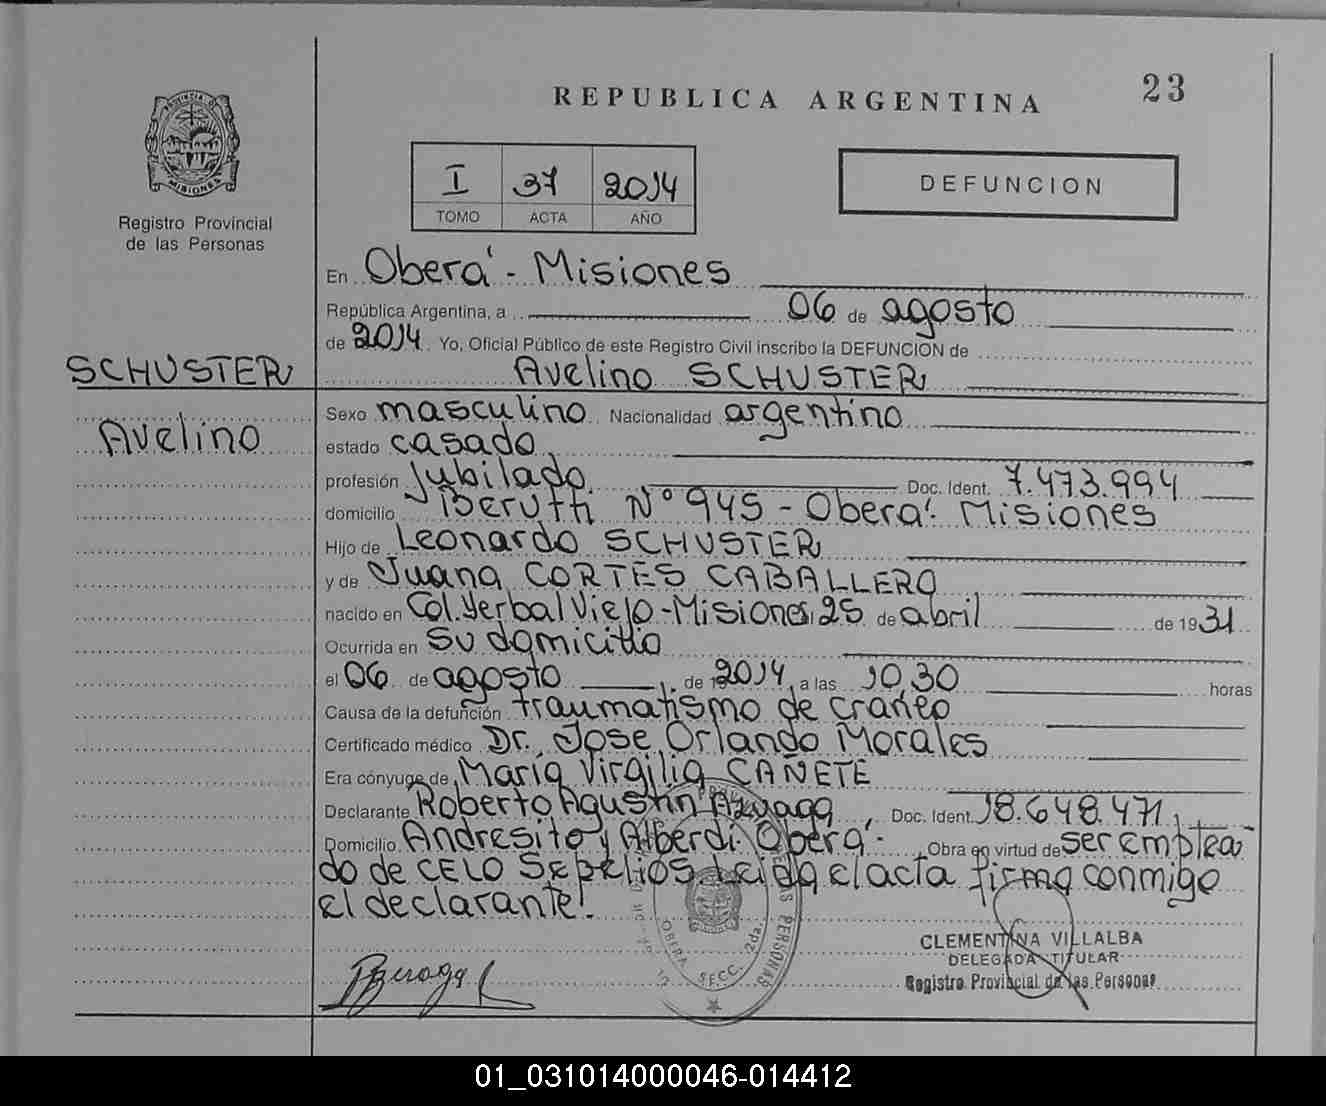 23
REPUBLICA ARGENTINA
PROVINCIA DE
MISIONES
Registro Provincial
de las Personas
I 37 2014
TOMO ACTA AÑO
DEFUNCION
En Oberá - Misiones
República Argentina, a 06 de agosto
de 2014 Yo, Oficial Público de este Registro Civil inscribo la DEFUNCION de
SCHUSTER
Avelino SCHUSTER
Avelino
Sexo masculino Nacionalidad argentino
estado casado
profesión Jubilado Doc. Ident. 7.473.994
domicilio Beruth Nº 945 - Oberá. Misiones
Hijo de Leonardo SCHUSTER
y de Juana CORTES CABALLERO
nacido en Col. Yerbal Viejo - Misiones, 25 de abril de 1931
Ocurrida en su domicilio
el 06 de agosto de 2014 a las 10,30 horas
Causa de la defunción traumatismo de craneo
Certificado médico Dr. Jose Orlando Morales
Era cónyuge de Maria Virgilia CAÑETE
Declarante Roberto Agustin Azuaga, Doc. Ident. 18.648.471,
Domicilio Andresito y Alberdi. Oberá. Obra en virtud de ser emplea
do de CELO Sepelios Leida el acta firma conmigo
el declarante.
PERSONAS
OBERA SECC. 2da.
CLEMENTINA VILLALBA
DELEGADA TITULAR
Registro Provincial de las Personas
01_031014000046-014412